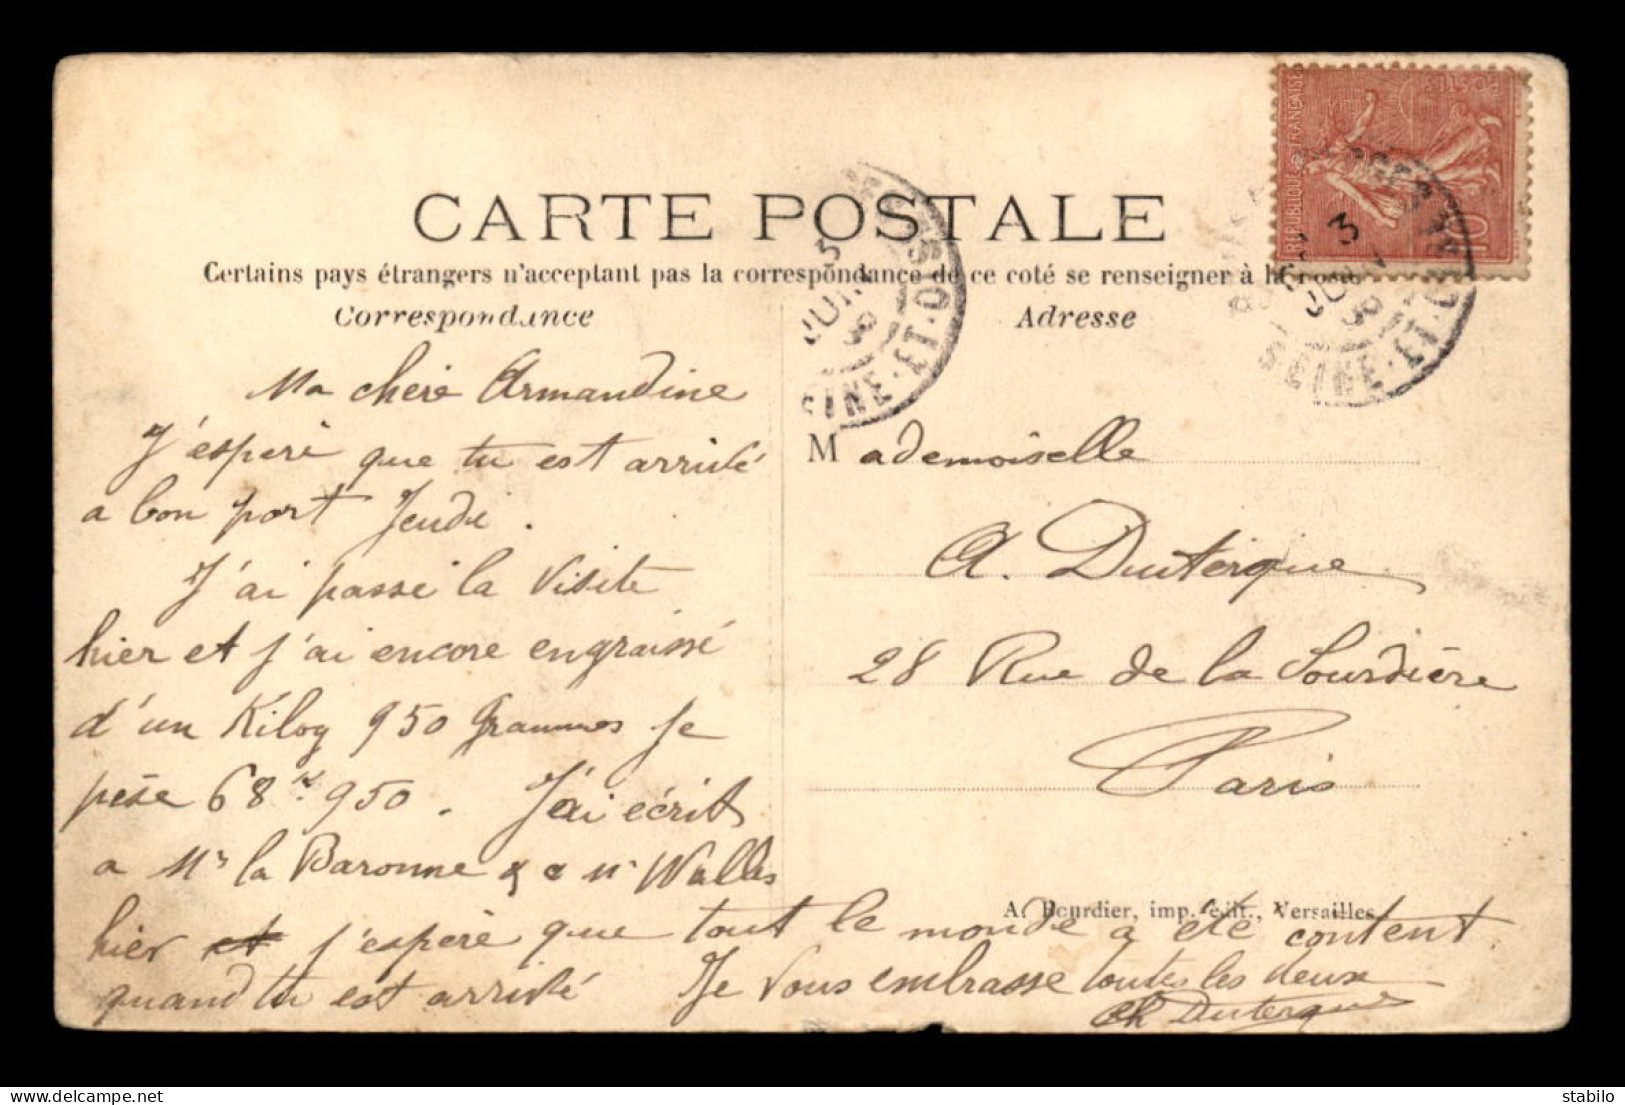 CARTE POSTALE
Certains pays étrangers n'acceptant pas la correspondance de ce coté se renseigner à la Poste
Correspondance
Adresse
Ma chère Armandine
J'espère que tu est arrivé
a bon port Jeudi.
J'ai passé la Visite
hier et j'ai encore engraissé
d'un Kilog 950 Grammes je
pèse 68 K. 950. J'ai écrit
a Mr la Baronne & a Mr Walles
hier et j'espère que tout le monde a été content
quand tu est arrivé Je Vous embrasse toutes les deux
Ch Duterque
Mademoiselle
A. Duterque
28 Rue de la Sourdière
Paris
A. Bourdier, imp. édit., Versailles
REPUBLIQUE FRANÇAISE
POSTES
10
3
JUIN
SEINE-ET-O
3
JUIN
SEINE-ET-O
delcampe.net
stabilo